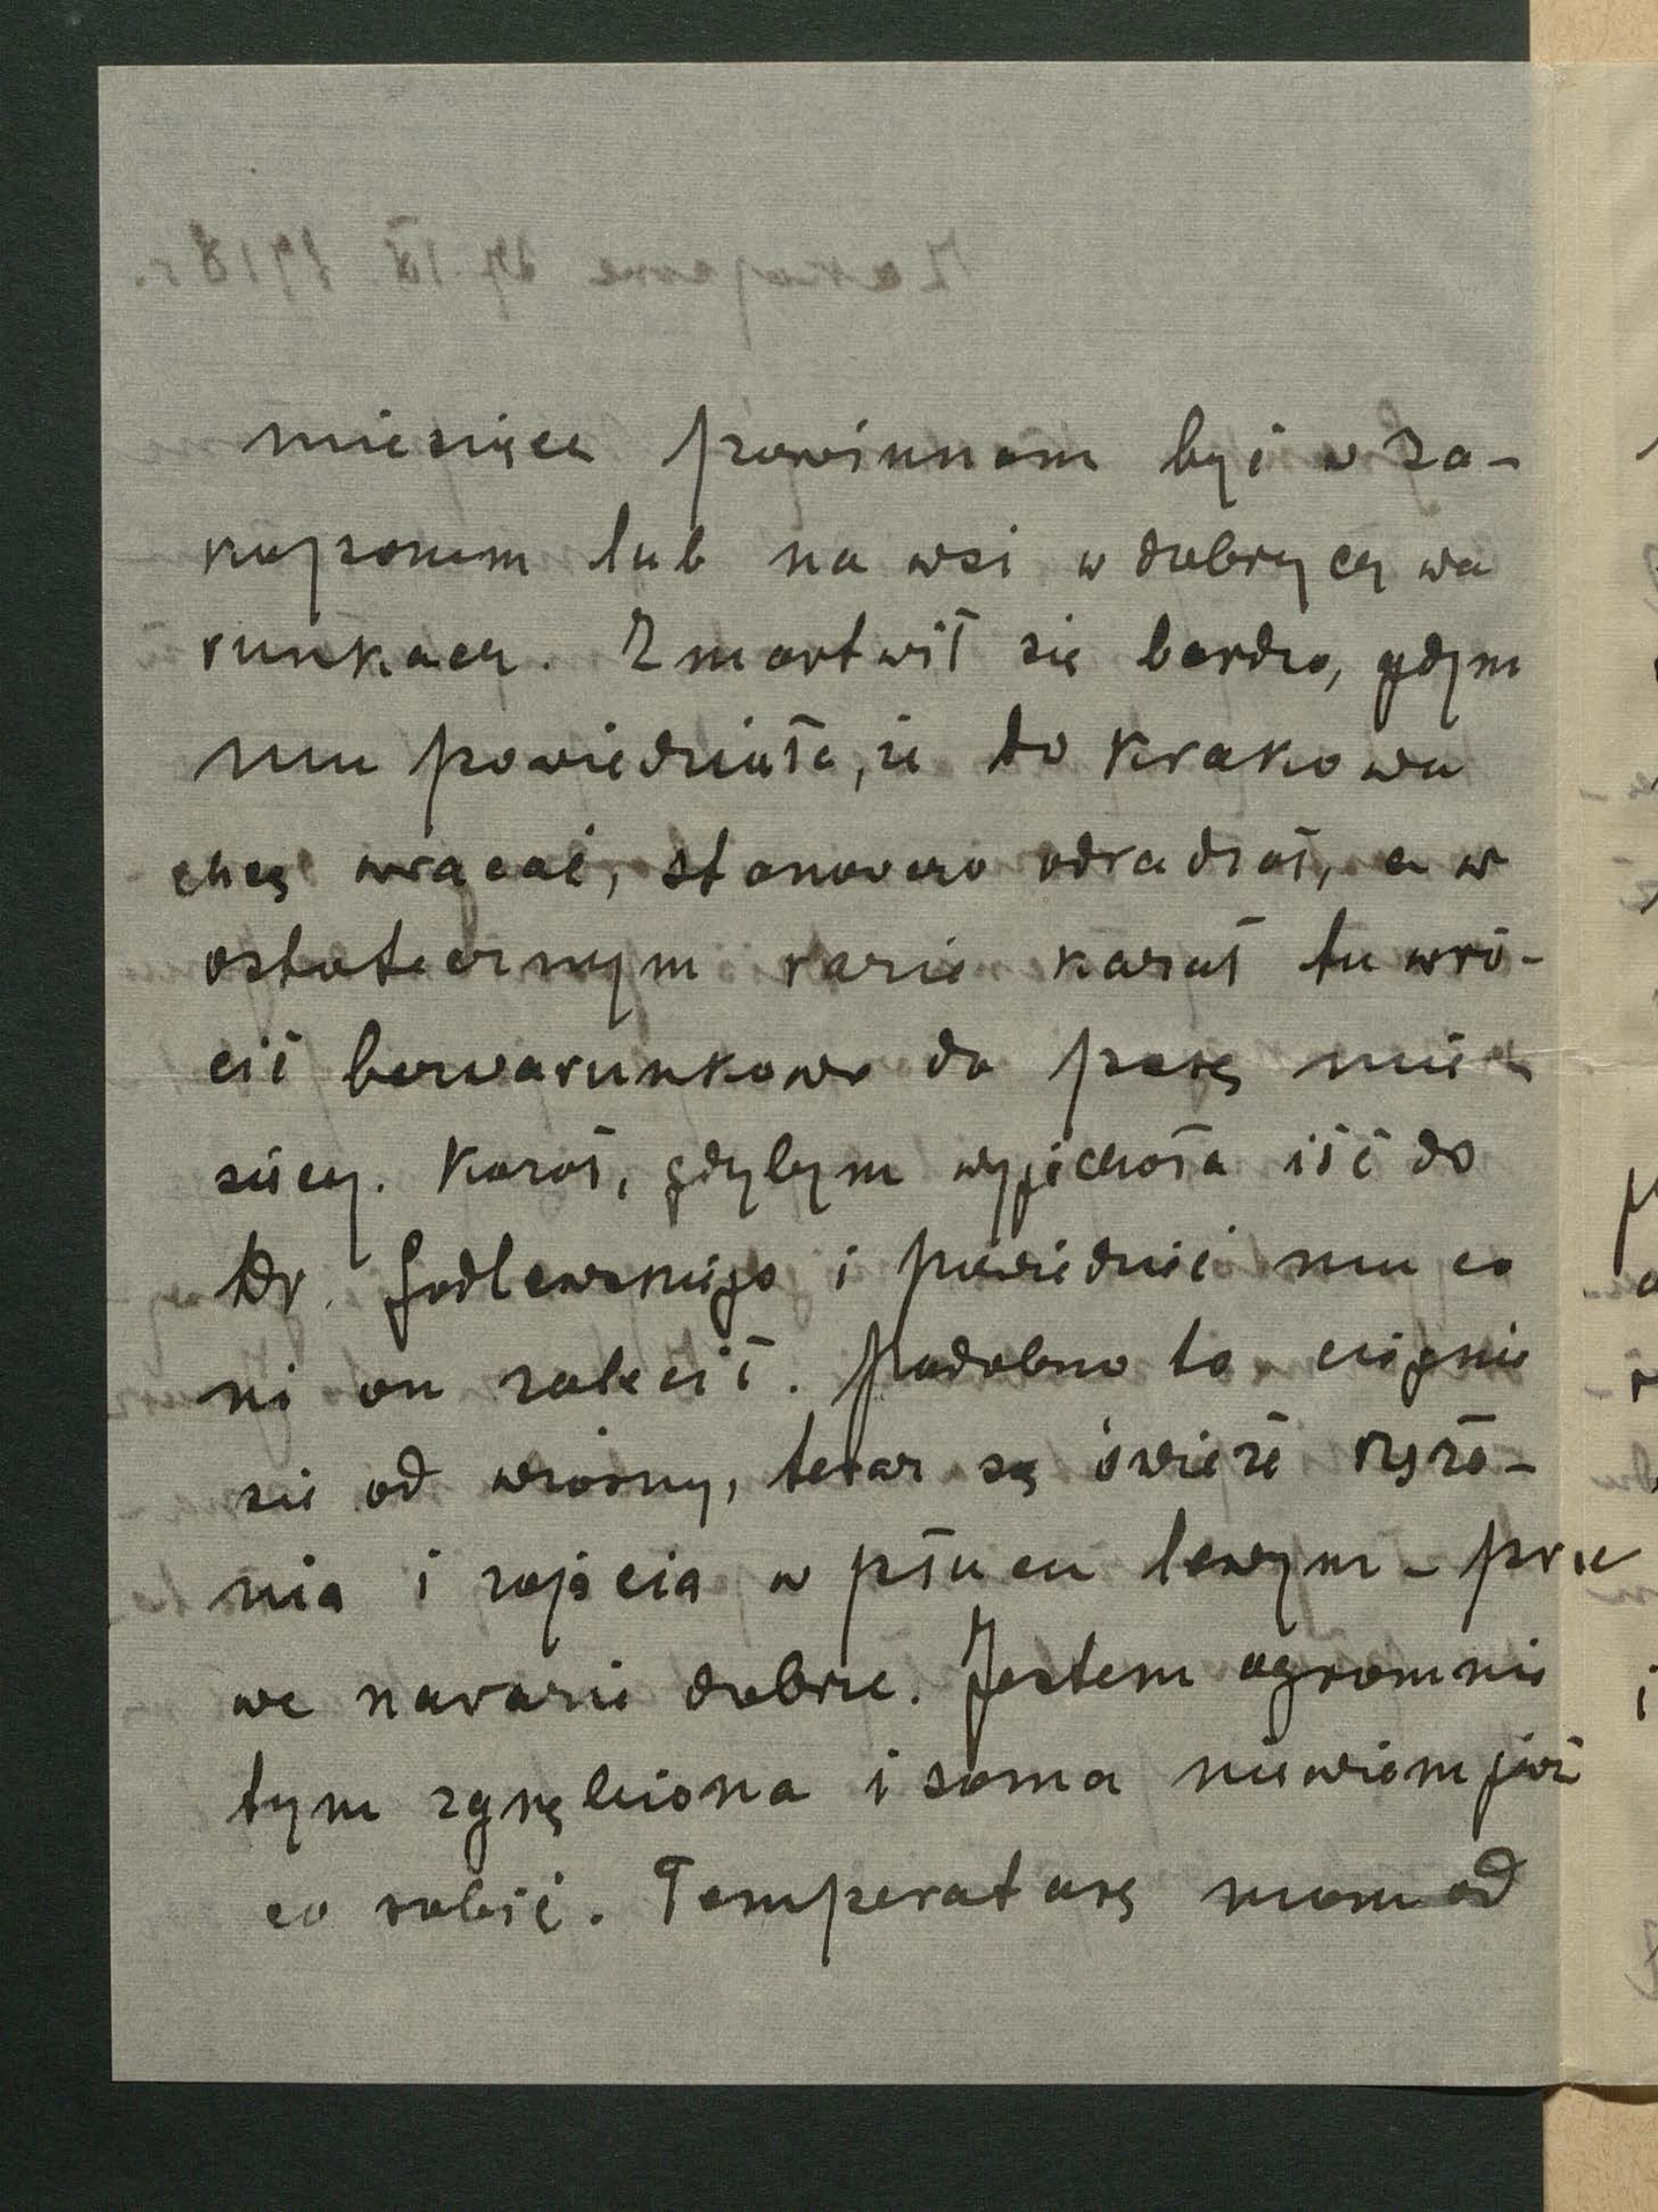 miesiące powinnam być w Za-
kopanem lub na wsi w dobrych wa
runkach. Zmartwił się bardzo, gdym
mu powiedziała, że do Krakowa
chcę wracać, stanowczo odradzał, a w
ostatecznym razie kazał tu wró-
cić bezwarunkowo do parę mie
sięcy. Kazał, gdybym wyjechała iść do
Dr. Godlewskiego i powiedzieć mu co
mi on zalecił. Podobno to ciągnie
się od wiosny, teraz są świeże rzęże-
nia i zajęcia w płucu lewym - pra
we narazie dobrze. Jestem ogromnie
tym zgnębiona i sama nie wiem już
co robić. Temperaturę mam od